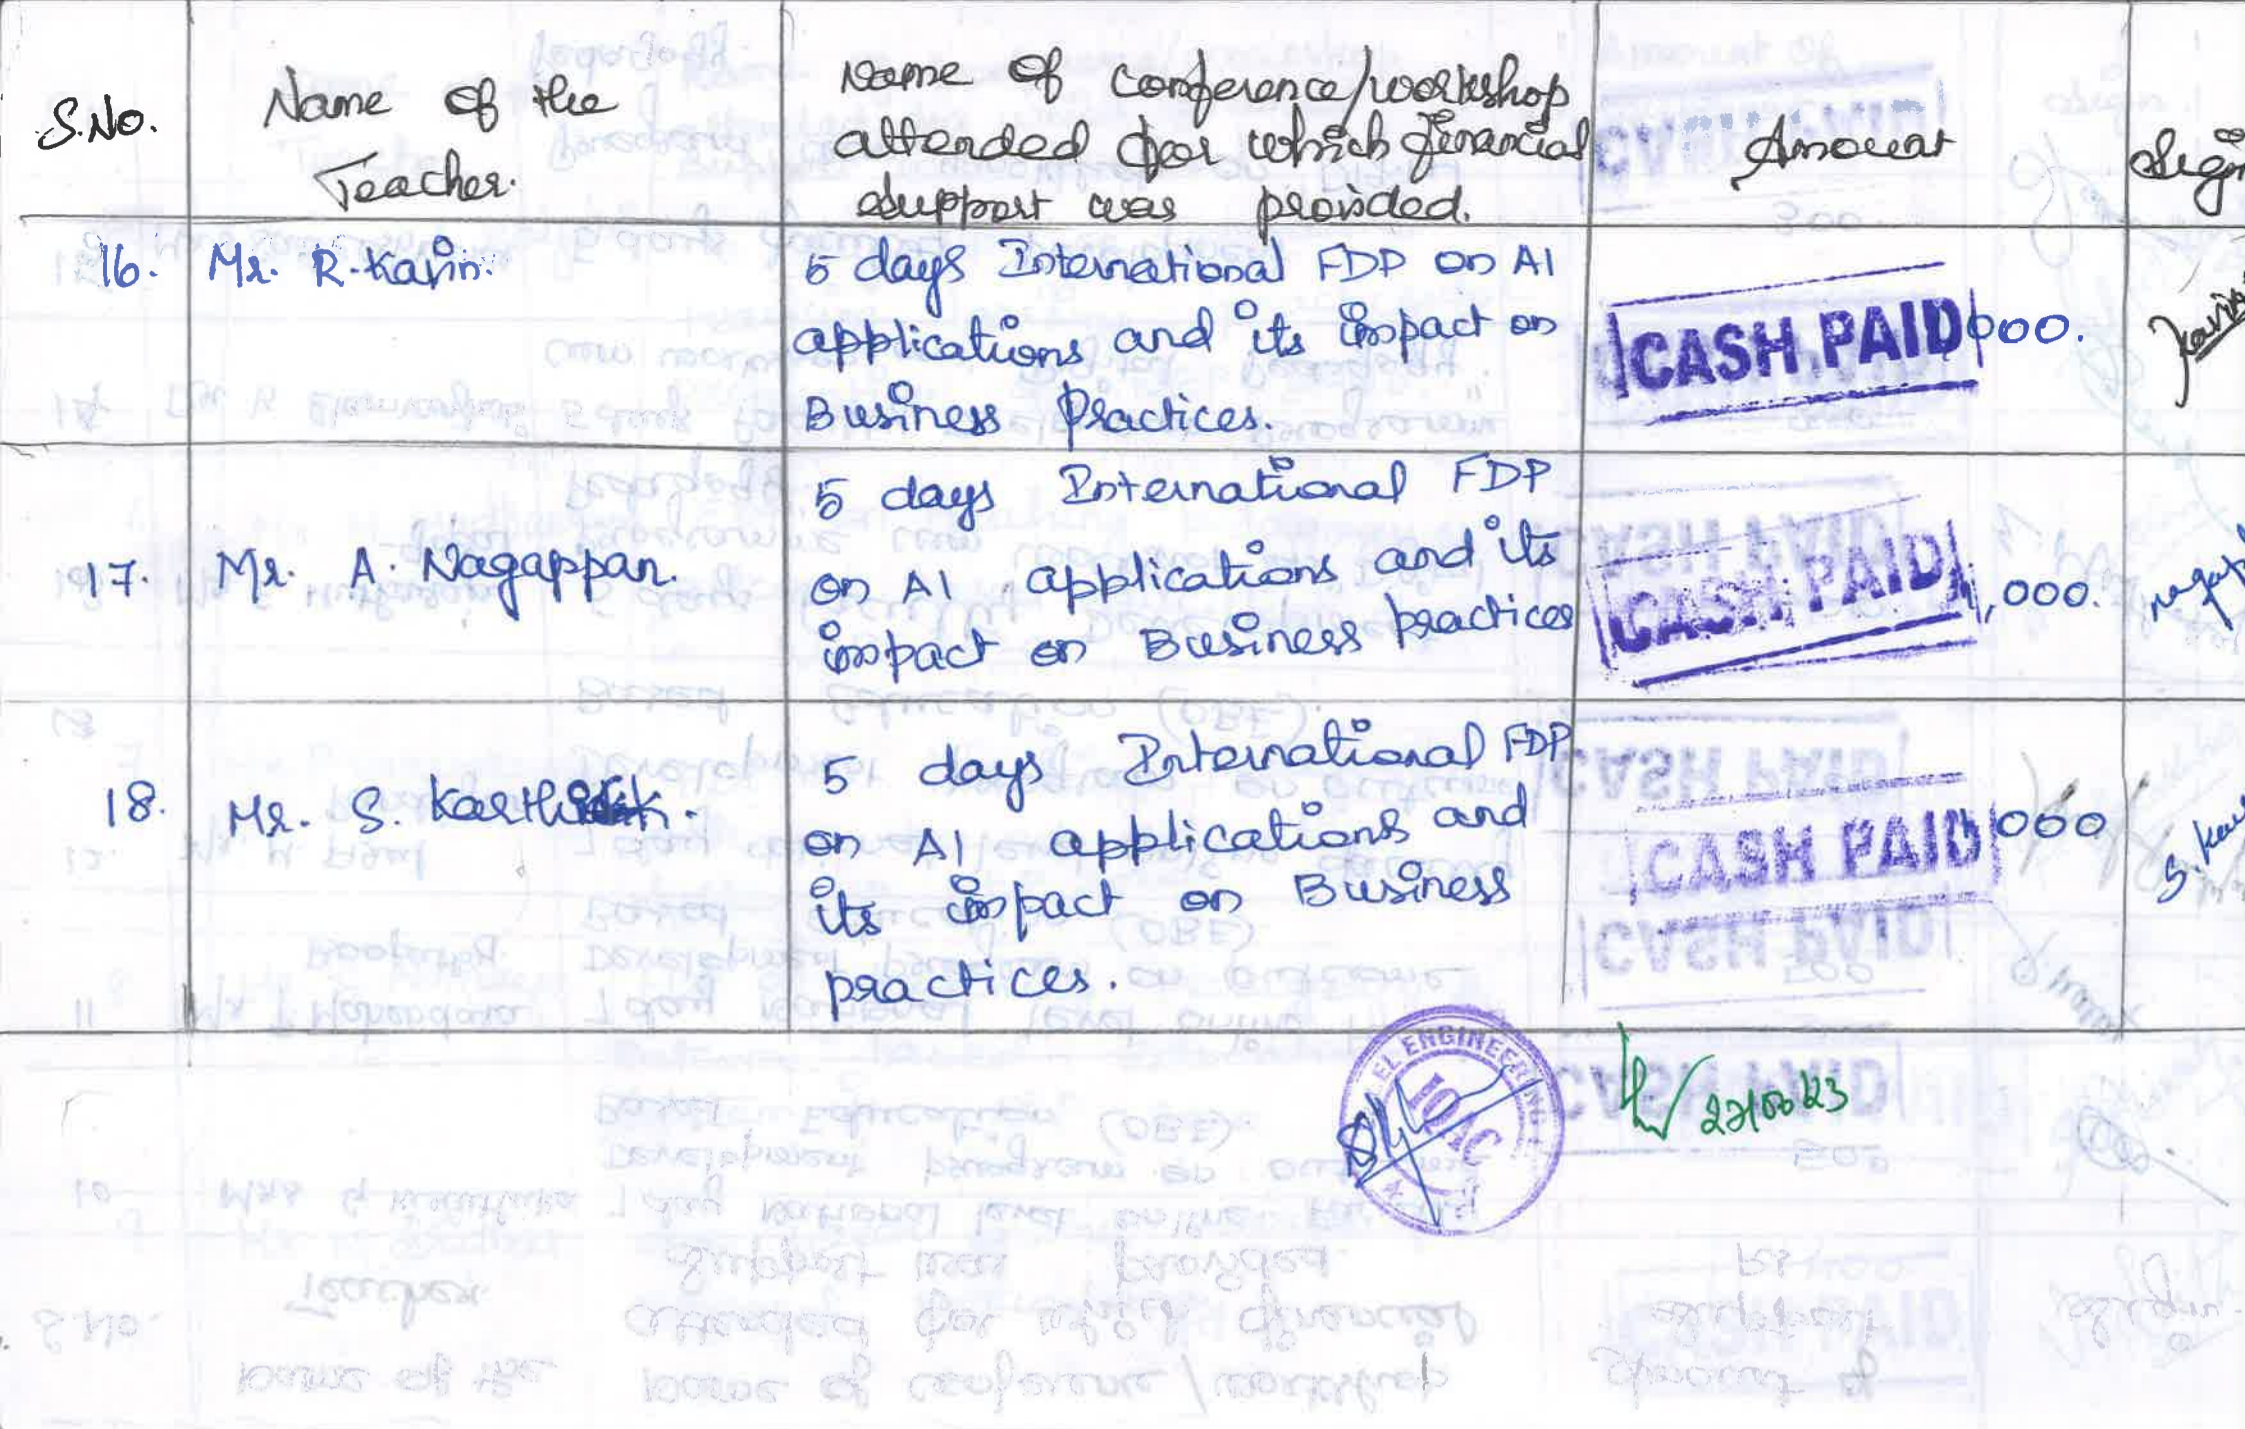 S.No.
Name of the
Teacher.
Name of conference/workshop
attended for which financial
support was provided.
Amount
Sign
16.
Mr. R. Kavin.
5 days International FDP on AI
applications and its impact on
Business Practices.
CASH PAID
000.
17.
Mr. A. Nagappan.
5 days International FDP
on AI applications and its
impact on Business practices
CASH PAID
1,000.
18.
Mr. S. Karthick.
5 days International FDP
on AI applications and
its impact on Business
practices.
CASH PAID
000
ENGINEERING
IQAC